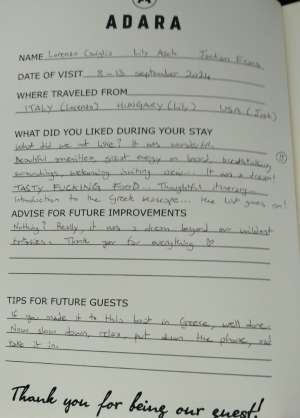 ADARA
NAME Lorenzo Lily Jordan Evans
DATE OF VISIT 8-13 september 2024
WHERE TRAVELED FROM
ITALY (Lorenzo) HUNGARY (Lily) USA (Jordan)
WHAT DID YOU LIKED DURING YOUR STAY
What did we not like? It was wonderful.
Beautiful amenities, great energy on board, breathtaking
surroundings, welcoming crew... It was a dream!
TASTY FUCKING FOOD... Thoughtful itinerary...
Introduction to the Greek seascape... the list goes on!
ADVISE FOR FUTURE IMPROVEMENTS
Nothing? Really, it was a dream beyond our wildest
Thank you for everything
TIPS FOR FUTURE GUESTS
If you made it to this boat in Greece, well done.
Now, slow down, relax, put down the phone, and
take it in.
Thank you for being our guest!